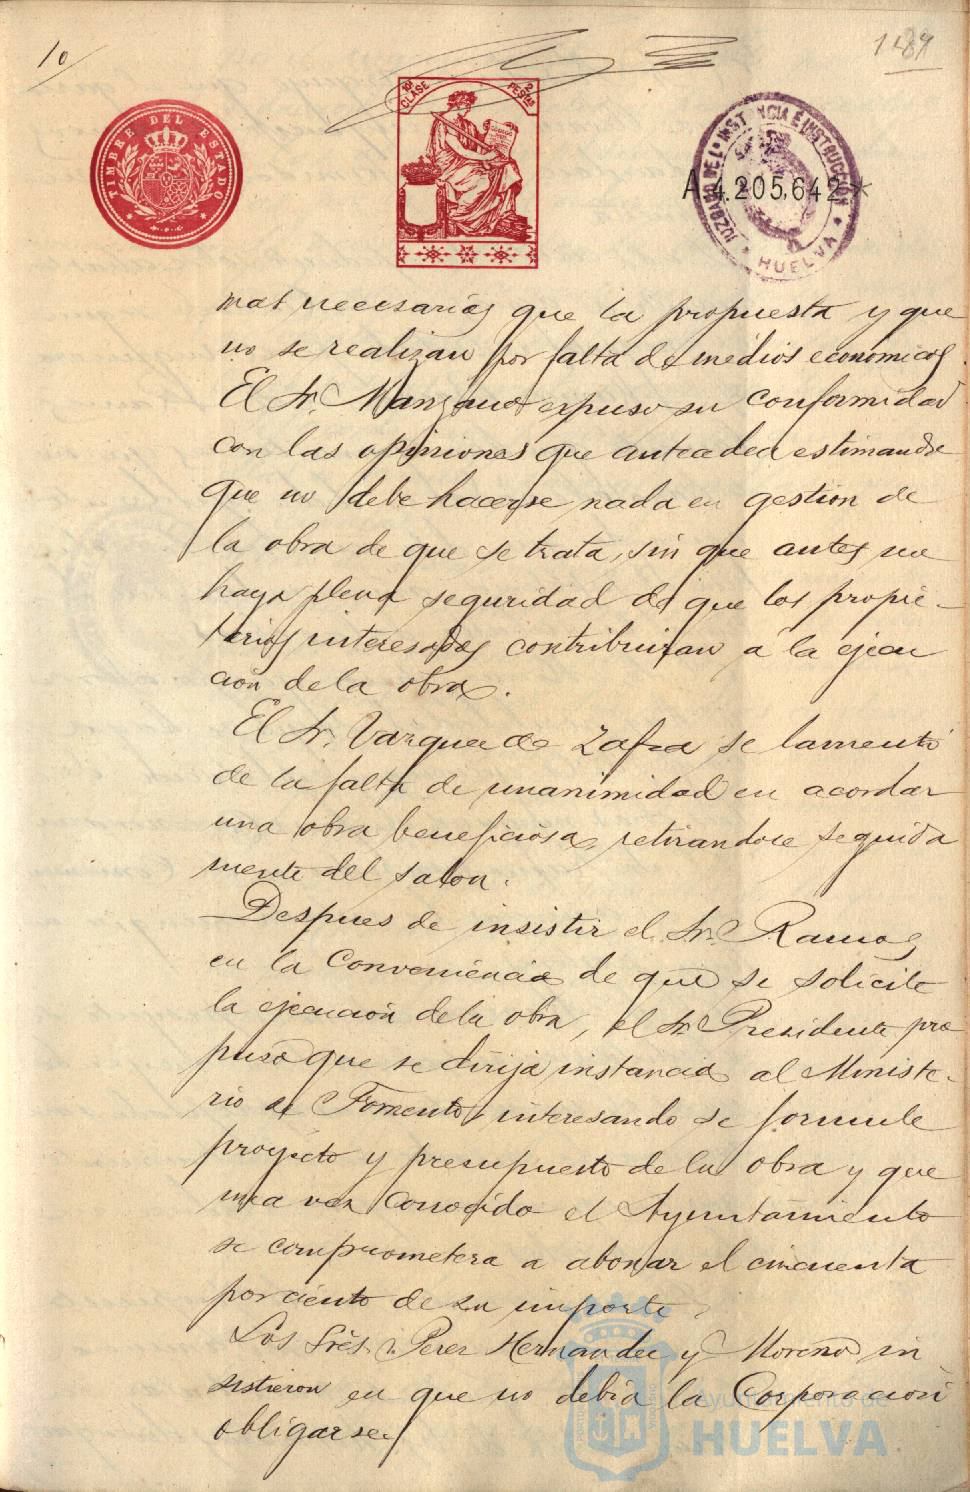 10
189
TIMBRE DEL ESTADO
10ª CLASE
2 PESETAS
JUZGADO DE 1ª INSTANCIA E INSTRUCCION
HUELVA
A 4.205,642 *
mas necesarias que la propuesta y que
no se realizan por falta de medios economicos
El Sr. Manzano expuso su conformidad
con las opiniones que anteceden estimando
que no debe hacerse nada en gestion de
la obra de que se trata, sin que antes no
haya plena seguridad de que los propie-
tarios interesados contribuiran á la ejecu
ción de la obra.
El Sr. Vazquez de Zafra se lamentó
de la falta de unanimidad en acordar
una obra beneficiosa, retirandose seguida
mente del salon.
Despues de insistir el Sr. Ramos
en la conveniencia de que se solicite
la ejecución de la obra, el Sr. Presidente pro
puso que se dirija instancia al Ministe-
rio de Fomento, interesando se formule
proyecto y presupuesto de la obra y que
una vez conocido el Ayuntamiento
se comprometera a abonar el cincuenta
por ciento de su importe.
Los Srês. Perez Hernandez y Moreno in
sistieron en que no debia la Corporacion
obligarse
Ayuntamiento de
HUELVA